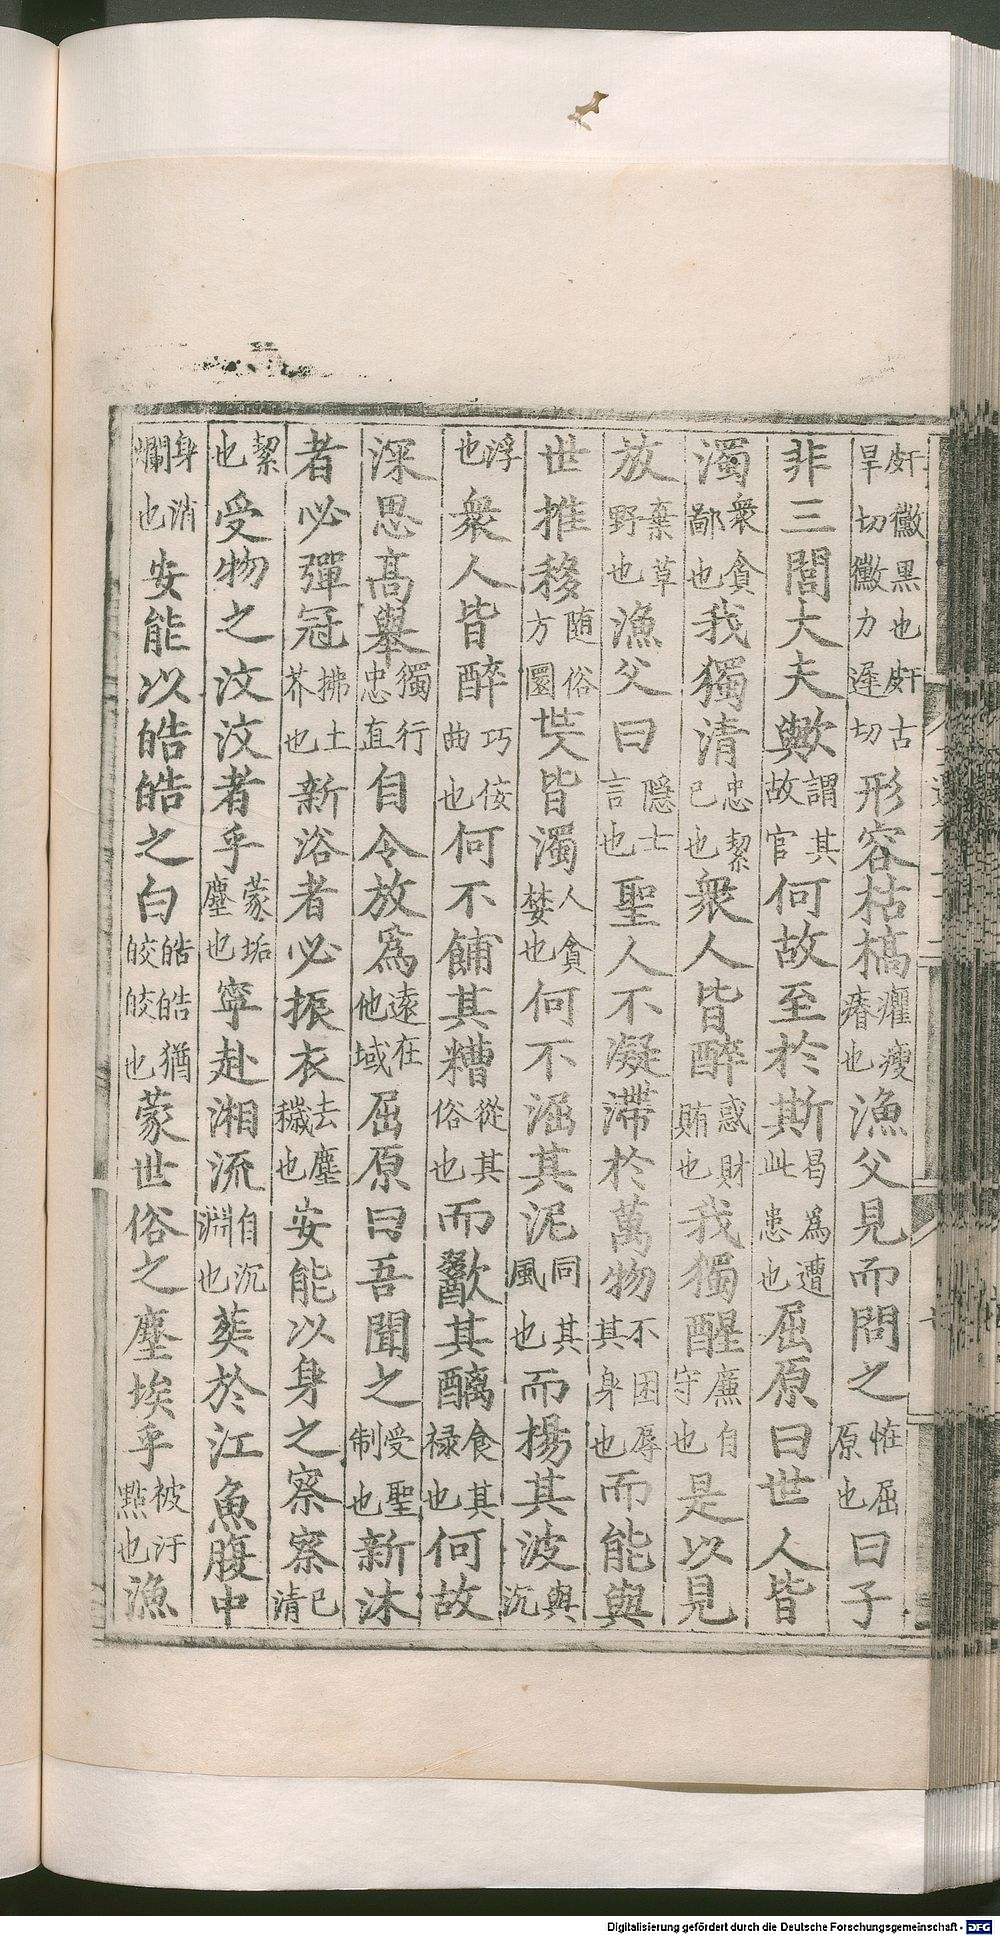 皯黴黑也皯古旱切黴力遲切形容枯槁癯瘦瘠也漁父見而問之恠屈原也曰子
非三閭大夫歟謂其故官何故至於斯曷爲遭此患也屈原曰世人皆
濁衆貪鄙也我獨清忠絜己也衆人皆醉惑財賄也我獨醒廉自守也是以見
放棄草野也漁父曰隱士言也聖人不凝滯於萬物不困辱其身也而能與
世推移随俗方圓世人皆濁人貪婪也何不淈其泥同其風也而揚其波與沉
浮也衆人皆醉巧佞曲也何不餔其糟從其俗也而歠其醨食其禄也何故
深思高舉獨行忠直自令放爲遠在他域屈原曰吾聞之受聖制也新沐
者必彈冠拂土芥也新浴者必振衣去塵穢也安能以身之察察已清
絜也受物之汶汶者乎蒙垢塵也寧赴湘流自沉淵也葬於江魚腹中
身消爛也安能以皓皓之白皓皓猶皎皎也蒙世俗之塵埃乎被汙點也漁
Digitalisierung gefördert durch die Deutsche Forschungsgemeinschaft - DFG